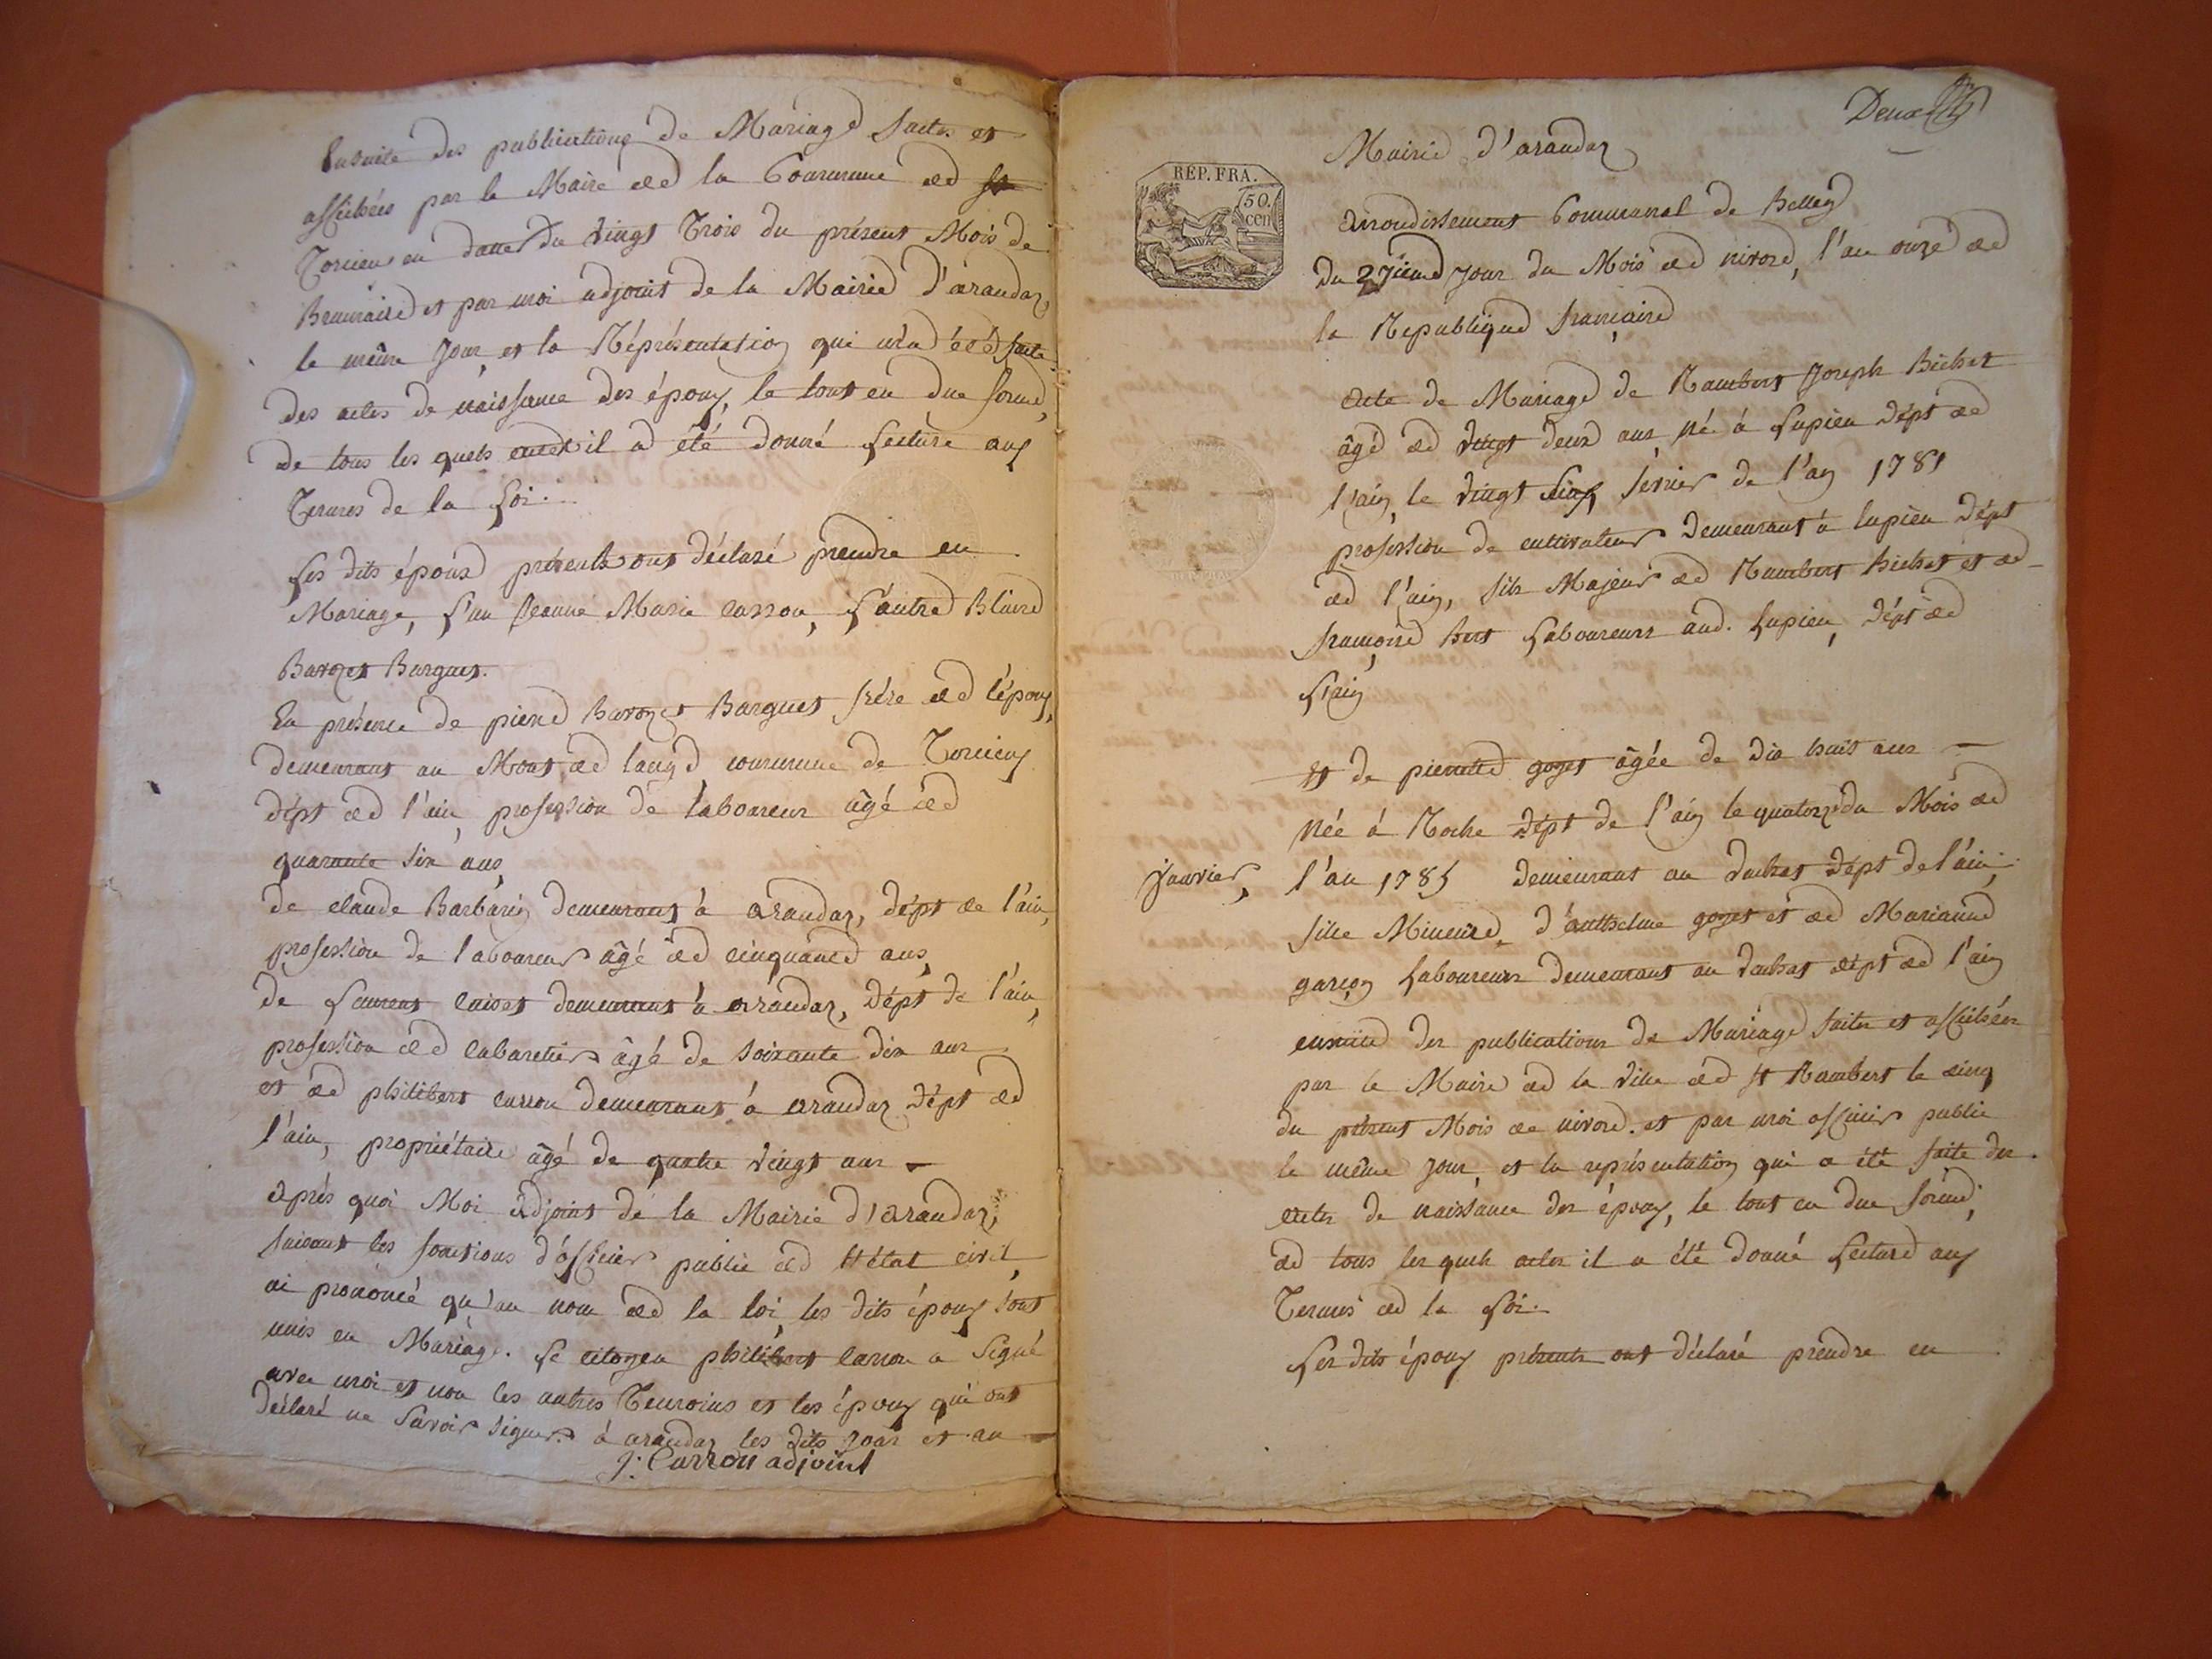 Ensuite des publications de Mariage faites et
affichées par le Maire de la Commune de st
Torcieu en datte du vingt Trois du présent Mois de
Brumaire et par moi adjoint de la Mairie d'arandaz,
le même Jour, et la Réprésentation qui m'a été faite
des actes de naissance des époux, le tout en due forme,
de tous les quels actes il a été donné Lecture aux
Termes de la Loi.
Les dits époux présents ont déclaré prendre en
Mariage, L'un Jeanne Marie carron, L'autre
Barozet Barguet.
En présence de pierre Barozet Barguet frère de l'époux,
demeurant au Mont de lange commune de Torcieu
dépt de l'ain, profession de laboureur âgé de
quarante six ans,
de claude Barbarin demeurant à arandaz, dépt de l'ain,
profession de laboureur âgé de cinquante ans,
de Laurent demeurant à arandaz, dépt de l'ain,
profession de cabaretier âgé de soixante dix ans
et de philibert carron demeurant à arandaz dépt de
l'ain, propriétaire âgé de quatre vingt ans
après quoi Moi adjoint de la Mairie d'arandaz,
faisant les fonctions d'officier public de l'état civil,
ai prononcé qu'au nom de la loi, les dits époux sont
unis en Mariage. Le citoyen philibert carron a Signé
avec moi et non les autres Temoins et les époux qui ont
déclaré ne Savoir signer. à arandaz les dits jour et an
J: Carron adjoint
Deux
Mairie d'arandaz
REP. FRA.
50. cen
arrondissement Communal de Belley
du 27ieme Jour du Mois de nivose, l'an onze de
la Republique française
acte de Mariage de Rambert Joseph Bichet
âgé de vingt deux ans né à Lupieu dépt de
l'ain, le vingt fevrier de l'an 1781
profession de cultivateur demeurant à lupieu dépt
de l'ain, fils Majeur de Rambert bichet et de
françoise Laboureurs aud. Lupieu, dépt de
L'ain
et de pierrette goyet âgée de dix huit ans
Née à Roche dépt de l'ain le quatorze du Mois de
janvier, l'an 1785 demeurant au dépt de l'ain,
fille Mineure d'anthelme goyet et de Marianne
garçon Laboureurs demeurant au dépt de l'ain
ensuite des publications de Mariage faites et affichées
par le Maire de la ville de st Rambert le cinq
du présent Mois de nivose. et par moi officier public
le même jour, et la représentation qui a été faite des
actes de naissance des époux, le tout en due forme,
de tous les quels actes il a été donné Lecture aux
Termes de la Loi.
Les dits époux présents ont déclaré prendre en